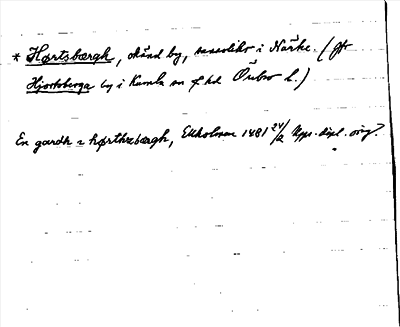 * Hørtsbærgh, okänd by, sannolikt i Närke. (Jfr
Hjortsberga by i Kumla sn o. hd Örebro l.)
En gardh i hørthzbærgh, Ekholmen 1481 24/2 Upps. dipl. orig.